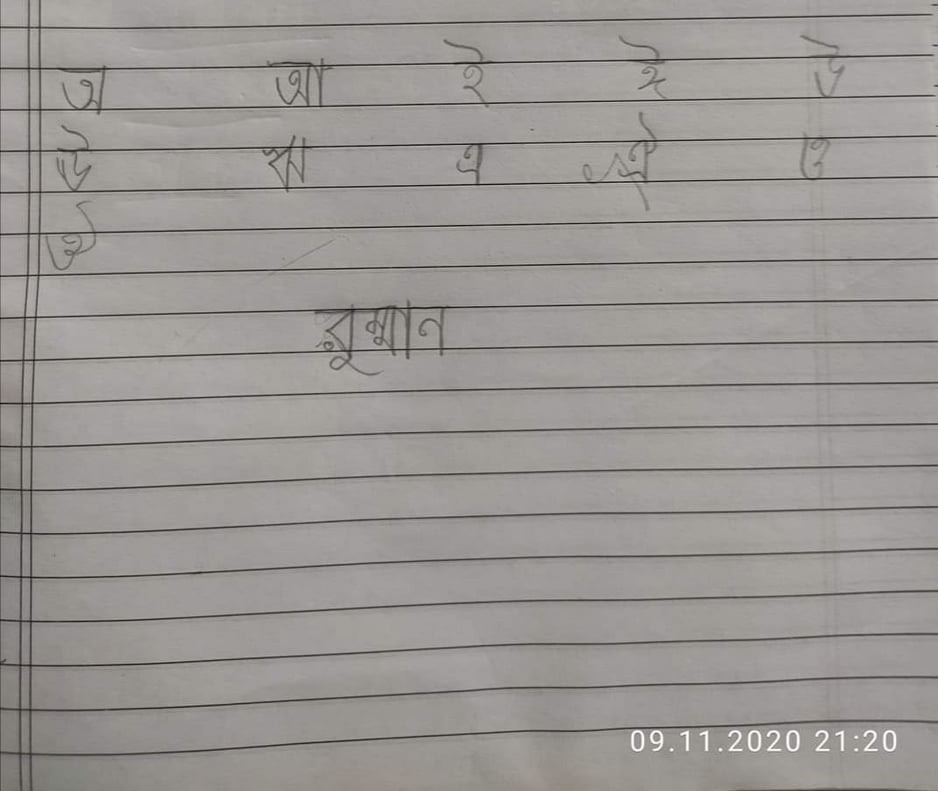 অ আ ই ঈ উ
ঊ ঋ এ ঐ ও
ঔ
রুম্মান
09.11.2020 21:20